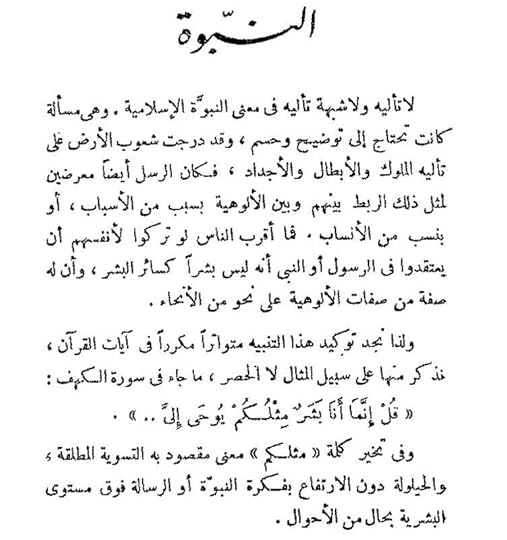 النبوّة
لا تأليه ولا شبهة تأليه فى معنى النبوَّة الإسلامية . وهى مسألة
كانت تحتاج إلى توضيح وحسم ، وقد درجت شعوب الأرض على
تأليه الملوك والأبطال والأجداد ، فكان الرسل أيضاً معرضين
لمثل ذلك الربط بينهم وبين الألوهية بسبب من الأسباب ، أو
بنسب من الأنساب . فما أقرب الناس لو تركوا لأنفسهم أن
يعتقدوا فى الرسول أو النبى أنه ليس بشراً كسائر البشر ، وأن له
صفة من صفات الألوهية على نحو من الأنحاء .
ولذا نجد توكيد هذا التنبيه متواتراً مكرراً فى آيات القرآن ،
نذكر منها على سبيل المثال لا الحصر ، ما جاء فى سورة الكهف :
« قُلْ إِنَّمَا أَنَا بَشَرٌ مِثْلُـكُمْ يُوحَى إِلىَّ .. » .
وفى تخير كلمة « مثلـكم » معنى مقصود به التسوية المطلقة ،
والحيلولة دون الارتفاع بفكرة النبوّة أو الرسالة فوق مستوى
البشرية بحال من الأحوال .